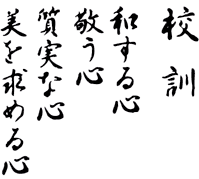 校訓
和する心
敬う心
質実な心
美を求める心